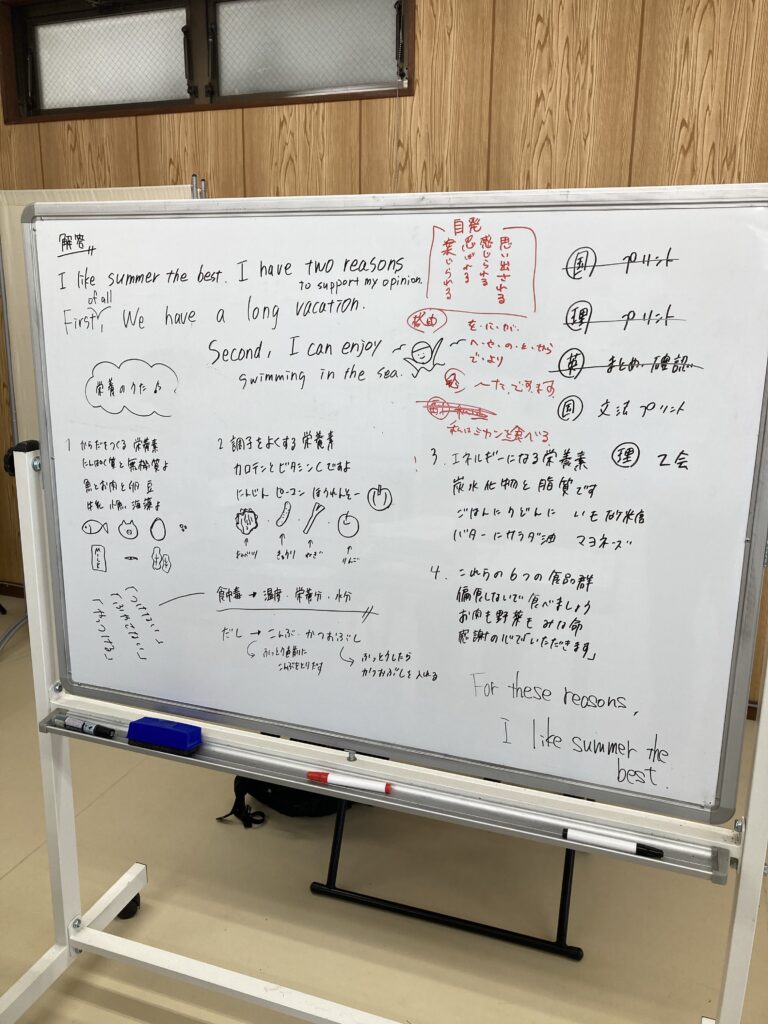 解答
I like summer the best. I have two reasons
to support my opinion.
of all
First, We have a long vacation.
Second, I can enjoy
swimming in the sea.
自発
思い出される
感じられる
思われる
案じられる
を・に・が・
へ・や・の・と・から
で・より
〜た、です、ます
私はミカンを食べる
国 プリント
理 プリント
英 まとめ、確認
国 文法プリント
理 Z会
栄養のうた
1 からだをつくる 栄養素
たんぱく質と無機質よ
魚とお肉と卵 豆
牛乳 小魚 海藻よ
2 調子をよくする 栄養素
カロテンとビタミンCですよ
にんじん ピーマン ほうれんそー
キャベツ
きゅうり
ねぎ
りんご
3. エネルギーになる 栄養素
炭水化物と脂質です
ごはんにうどんに いも 砂糖
バターにサラダ油 マヨネーズ
4. これらの6つの食品群
偏食しないで食べましょう
お肉も野菜も みな命
感謝の心で「いただきます」
「つけない」
「ふやさない」
「やっつける」
食中毒 → 温度・栄養分・水分
だし → こんぶ・かつおぶし
ふっとう直前に
こんぶをとりだす
ふっとうしたら
かつおぶしを入れる
For these reasons,
I like summer the
best.